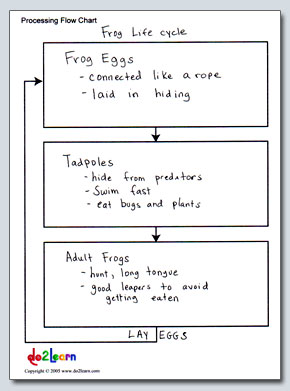 Processing Flow Chart
Frog Life cycle
Frog Eggs
- connected like a rope
- laid in hiding
Tadpoles
- hide from preditors
- Swim fast
- eat bugs and plants
Adult Frogs
- hunt, long tongue
- good leapers to avoid
getting eaten
LAY EGGS
do2Learn
Copyright © 2005 www.do2learn.com